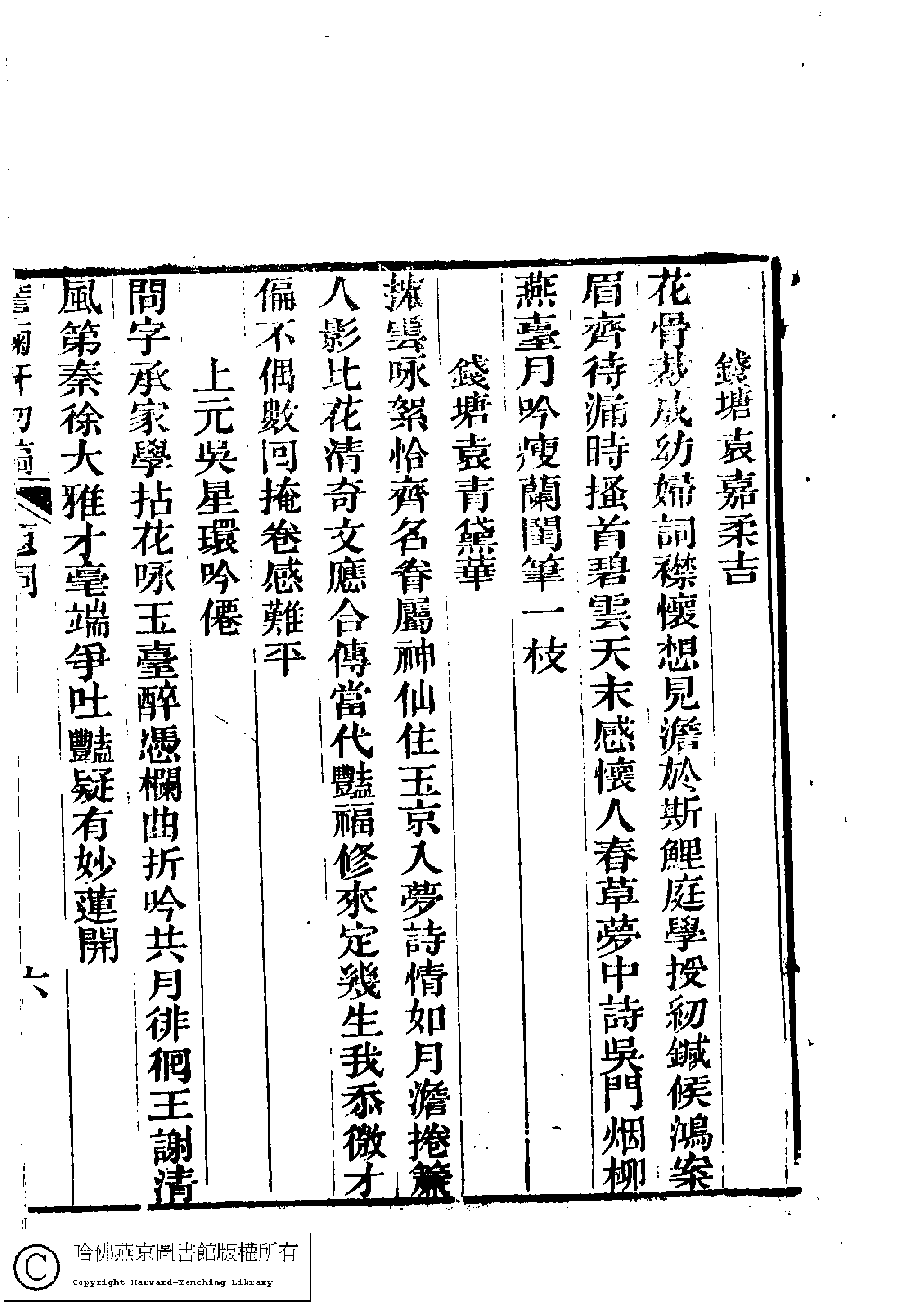 錢塘袁嘉柔吉
花骨裁成幼婦詞襟懷想見澹於斯鯉庭學授紉鍼候鴻案
眉齊待漏時搔首碧雲天末感懷人春草夢中詩吳門烟柳
燕臺月吟瘦蘭閨筆一枝
錢塘袁青黛華
擁雲咏絮恰齊名眷屬神仙住玉京入夢詩情如月澹捲簾
人影比花清奇文應合傳當代豔福修來定幾生我忝微才
偏不偶數回掩卷感難平
上元吳星環吟僊
問字承家學拈花咏玉臺醉憑欄曲折吟共月徘徊王謝清
風第秦徐大雅才毫端爭吐豔疑有妙蓮開
題詞
六
哈佛燕京圖書館版權所有
Copyright Harvard-Yenching Library